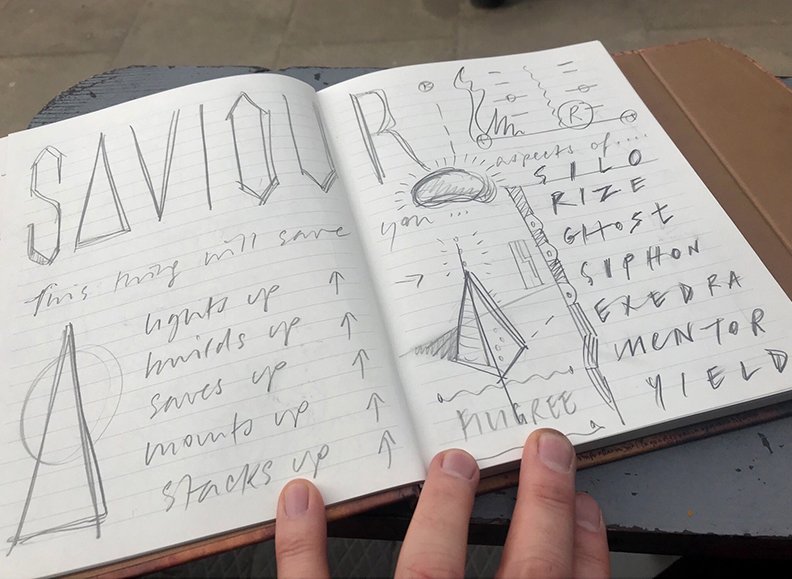 SAVIOUR
This thing will save you ...
lights up ↑
builds up ↑
saves up ↑
mounts up ↑
stacks up ↑
R
R
aspects of....
SILO
RIZE
GHOST
SIPHON
EXEDRA
MENTOR
YIELD